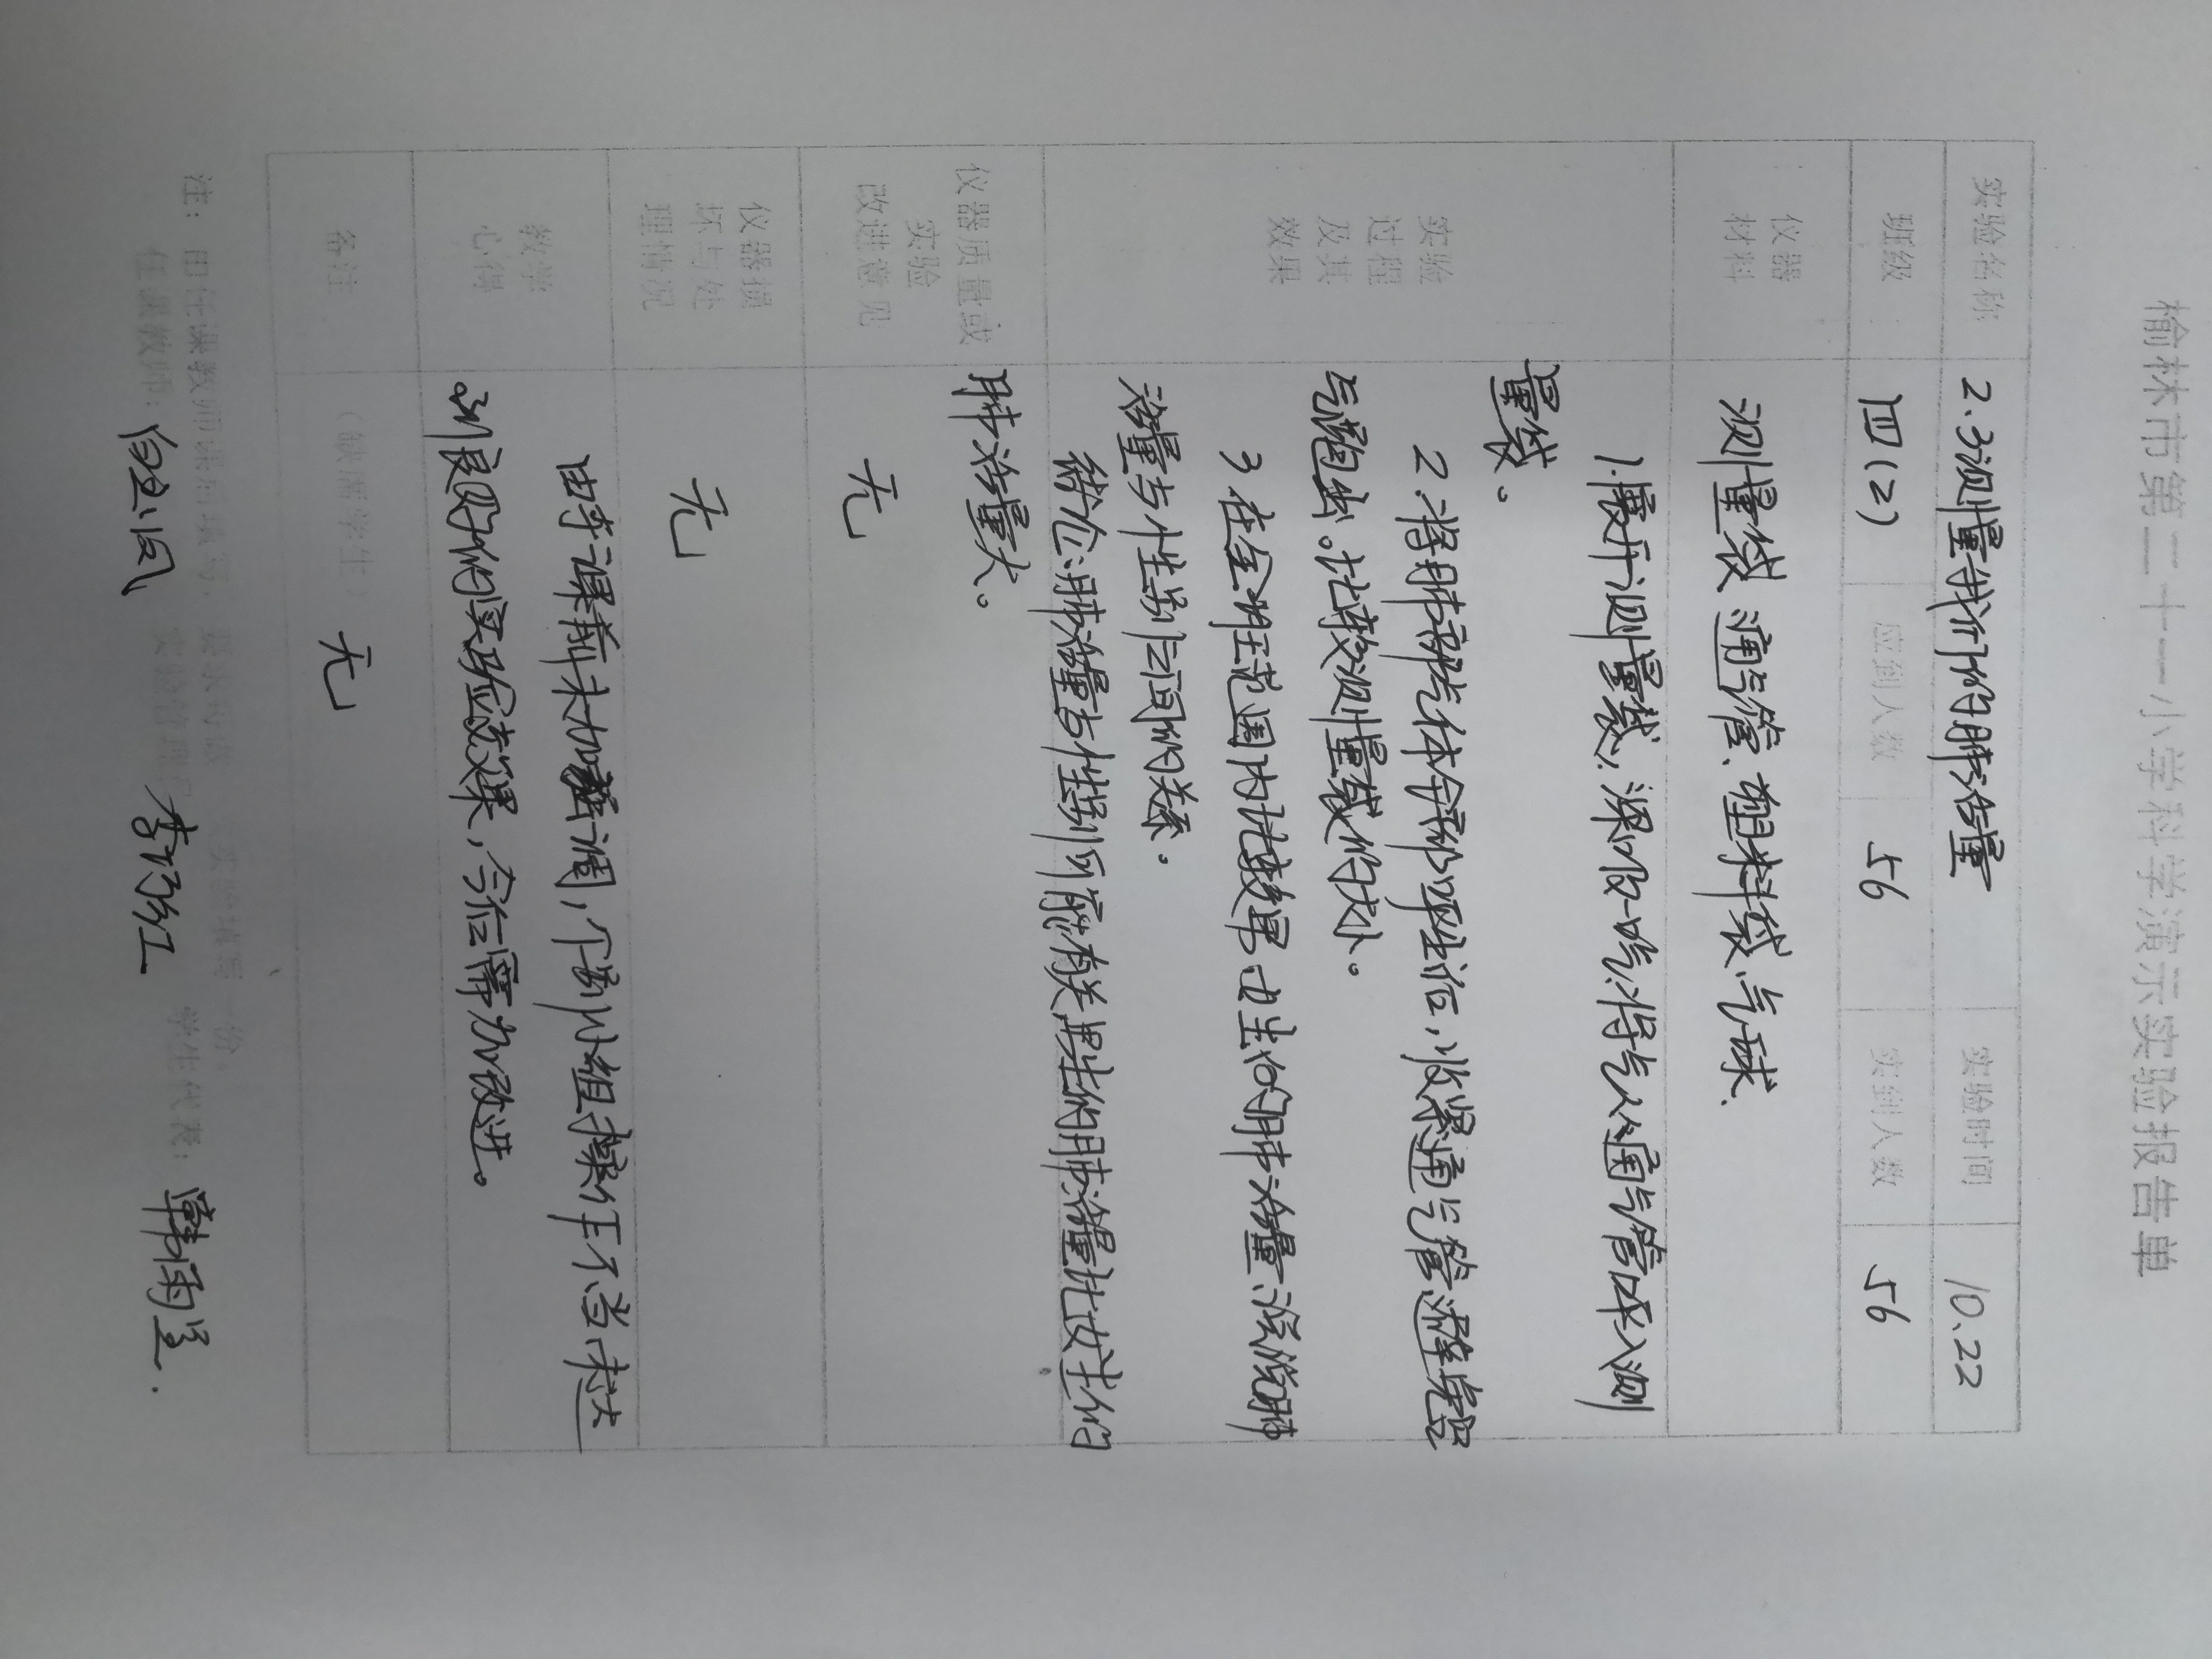 榆林市第二十一小学科学演示实验报告单
实验名称 2.3测量我们的肺活量 实验时间 10.22
班级 四(2) 应到人数 56 实到人数 56
仪器
材料
测量袋、通气管、塑料袋、气球、
实验
过程
及其
效果
1.撑开测量袋,深吸一口气,将气从通气管呼入测
量袋。
2.将肺部气体全部呼出后,收紧通气管,避免空
气跑出。比较测量袋的大小。
3 在全班范围内比较男女生的肺活量,说说肺
活量与性别之间的关系。
结论:肺活量与性别可能有关,男生的肺活量比女生的
肺活量大。
仪器质量或
实验
改进意见
无
仪器损
坏与处
理情况
无
教学
心得
由于课前未加强调,个别小组操作不当,未达
到良好的实验效果,今后需加改进。
备注 (缺席学生) 无
注:由任课教师课后填写,
任课教师: 实验管理员 学生代表:
李江红